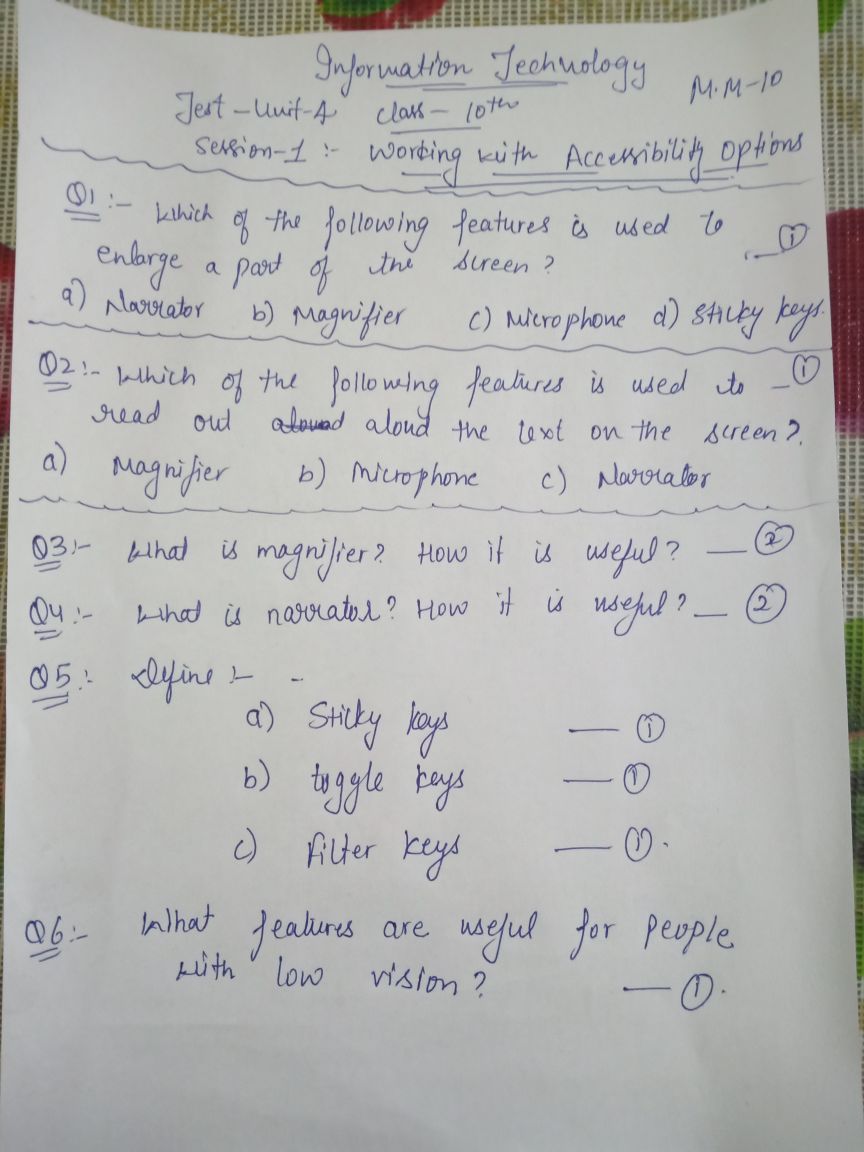 Information Technology
M.M-10
Test-Unit-4 class- 10th
Session-1 :- Working with Accessibility Options
Q1:- Which of the following features is used to
enlarge a part of the screen? — 1
a) Narrator b) Magnifier c) Microphone d) Sticky keys.
Q2:- Which of the following features is used to — 1
read out aloud the text on the screen?
a) Magnifier b) Microphone c) Narrator
Q3:- What is magnifier? How it is useful? — 2
Q4:- What is narrator? How it is useful? — 2
Q5:- Define :-
a) Sticky keys — 1
b) toggle keys — 1
c) Filter keys — 1.
Q6:- What features are useful for people
with low vision? — 1.